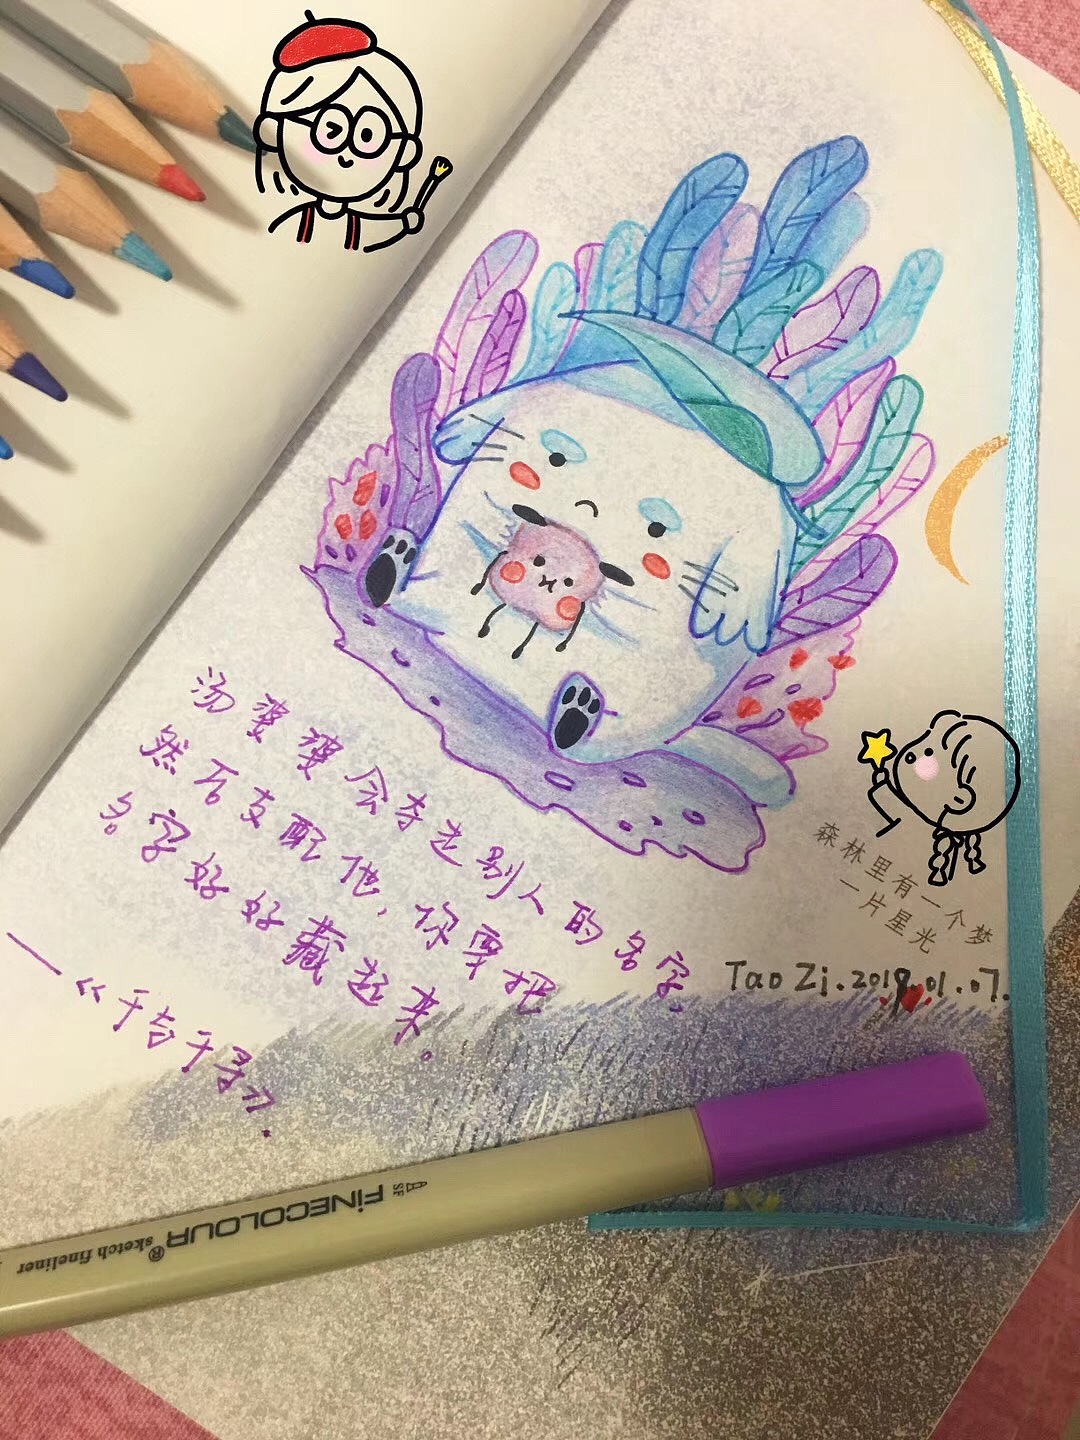 汤婆婆会夺走别人的名字,
然后支配他,你要把
名字好好藏起来。
—《千与千寻》.
森林里有一个梦
一片星光
Tao Zi.2019.01.07.
FINECOLOUR® sketch fineliner
SF